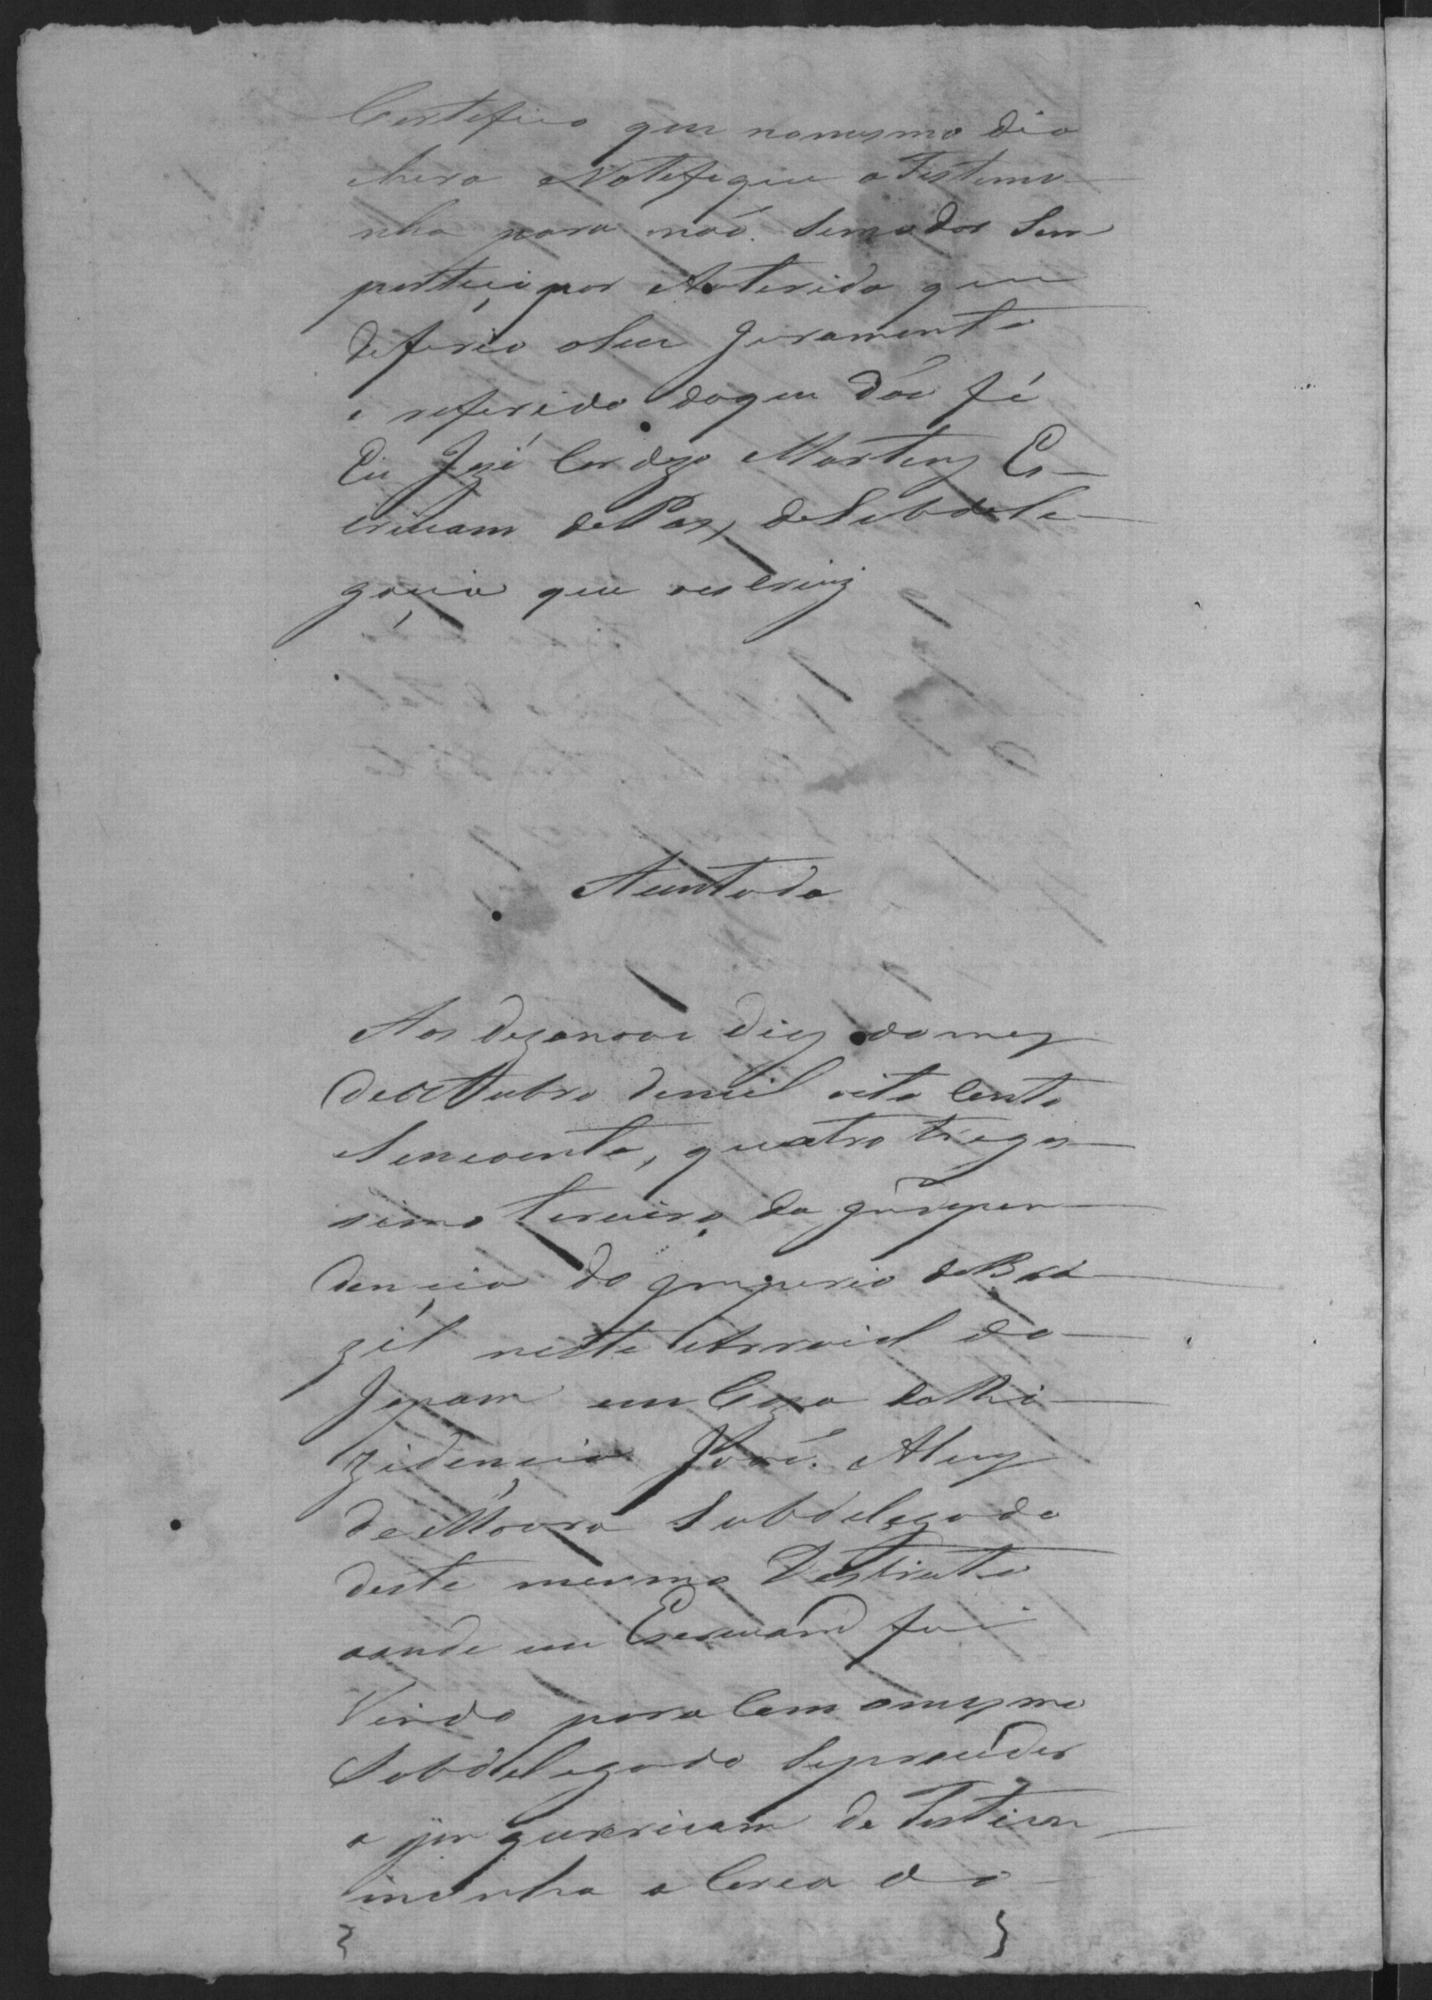 Certefico que nomesmo dia
ehera Notefique a Testemu
nha para naõ semudar sem
partiçipar Autorida que
deferio oseu Juramento
o referido doque dou fé
Eu José Cardozo Martins Es-
crivam de Paz, deSubdele-
gaçia que oescrivi
Auntada
Aos dezanove dias domes
deoutubro demil oito cento
sincoenta, quatro trigez-
simo terceiro da Indepen-
dençia do Imperio doBra
zil neste Arraial do
em Caza daRe-
zidençia José Alves
deMoura Subdelegado
deste mesmo Destricto
aonde eu Escrivam fui
Vindo para Com omesmo
Subdelegado Seproceder
a Inquericam de Testem
munha a Cerca do